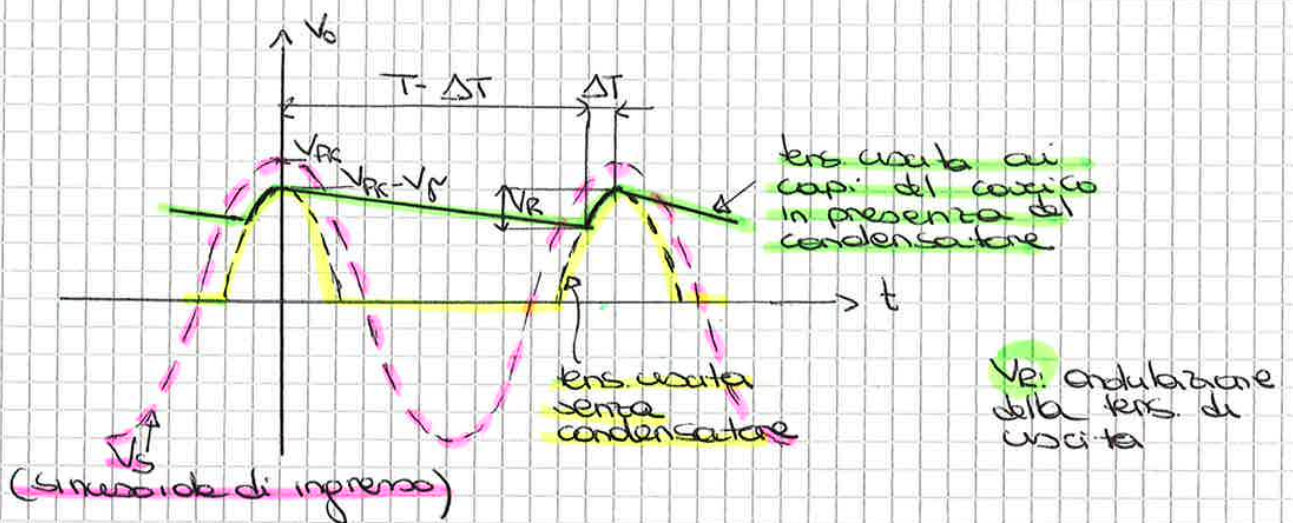 V₀
T - ΔT
ΔT
VPK
VPK - Vγ
VR
tens. uscita ai
capi del carico
in presenza del
condensatore
t
tens. uscita
senza
condensatore
VR: ondulazione
della tens. di
uscita
VS
(sinusoide di ingresso)